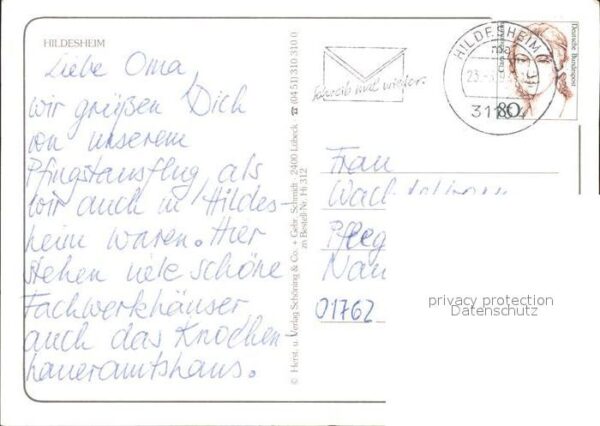 HILDESHEIM
Liebe Oma,
wir grüßen Dich
von unserem
Pfingstausflug als
wir auch in Hildes-
heim waren. Hier
stehen viele schöne
Fachwerkhäuser
auch das Knochen-
haueramtshaus.
© Herst. u. Verlag Schöning & Co. + Gebr. Schmidt · 2400 Lübeck · ☎ (04 51) 310 310 0
zu Bestell-Nr. Hi 312
Schreib mal wieder.
HILDESHEIM
23.
Deutsche Bundespost
80
Frau
Pfleg
Nau
01762
privacy protection
Datenschutz